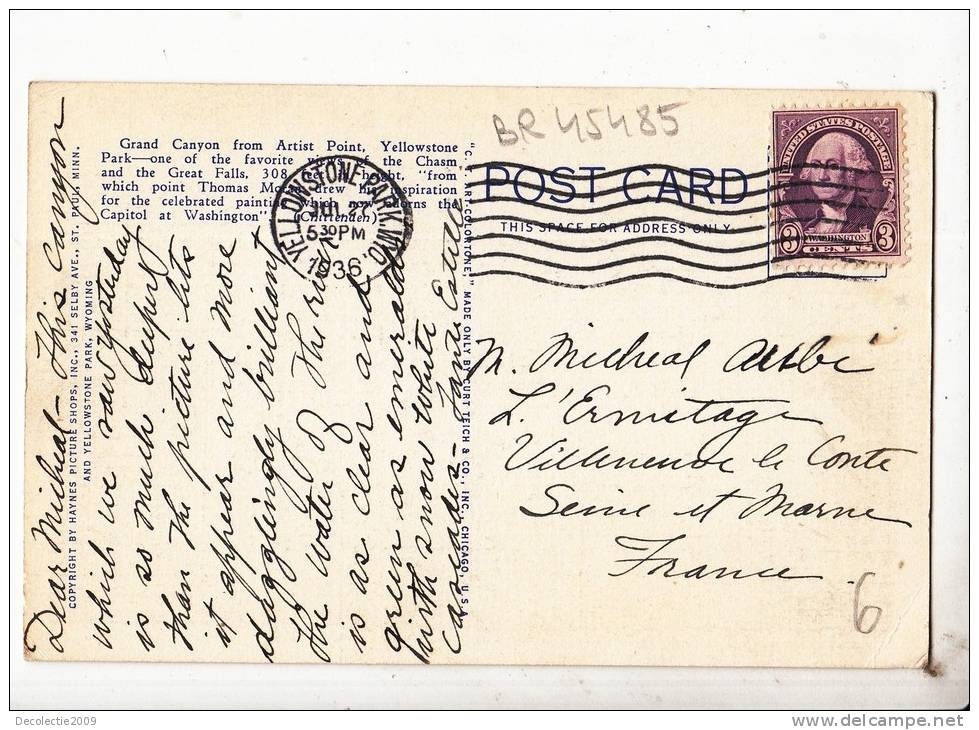 BR 45485
Grand Canyon from Artist Point, Yellowstone
Park—one of the favorite views of the Chasm
and the Great Falls, 308 feet in height, "from
which point Thomas Moran drew his inspiration
for the celebrated painting which now adorns the
Capitol at Washington". (Chittenden)
YELLOWSTONE PARK, WYO.
JUL 27
5 30 PM
1936
POST CARD
THIS SPACE FOR ADDRESS ONLY
UNITED STATES POSTAGE
3 WASHINGTON 3
CENTS
COPYRIGHT BY HAYNES PICTURE SHOPS, INC., 341 SELBY AVE., ST. PAUL, MINN.
AND YELLOWSTONE PARK, WYOMING
"C. T. ART-COLORTONE," MADE ONLY BY CURT TEICH & CO., INC., CHICAGO, U.S.A.
Dear Micheal - This Canyon
which we saw yesterday
is so much deeper
than the picture lets
it appear and more
dazzlingly brilliant
The water of the river
is as clear and
green as emerald
with snow white
cascades -
M. Micheal
L'Ermitage
Villeneuve le Conte
Seine et Marne
France
6
Decolectie2009
www.delcampe.net